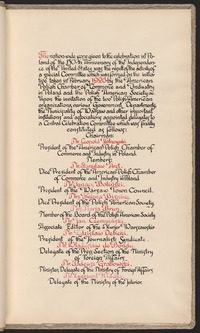 The nation-wide care given to the celebration of Po-
land of the 150-th Anniversary of the Independen-
ce of the United States was the result of the activity of
a special Committee which was formed on the initia-
tive taken in February 1926 by the American-
Polish Chamber of Commerce and Industry
in Poland and the Polish American Society in
Upon the invitation of the two Polish-American
organizations, various Government Departments,
the Municipality of Warsaw and other important
institutions and associations appointed delegates to
a Central Celebration Committee which was finally
constituted as follows:
Chairman:
Mr. Leopold Kotnowski
President of the American-Polish Chamber of
Commerce and Industry in Poland.
Members:
Mr. Stanislaw Arct,
Vice President of the American Polish Chamber
of Commerce and Industry in Poland.
Mr. Ignacy
President of the Warsaw Town Council.
Vice President of the Polish American Society.
Member of the Board of the Polish American Society
Mr. Jan
Associate Editor of the Kurjer Warszawski
Mr. Stanislaw Dębicki,
President of the Journalists Syndicate.
Delegate of the Press Section of the Ministry
of Foreign Affairs
Mr. Tadeusz Grabowski,
Minister, Delegate of the Ministry of Foreign Affairs
Delegate of the Ministry of the Interior.